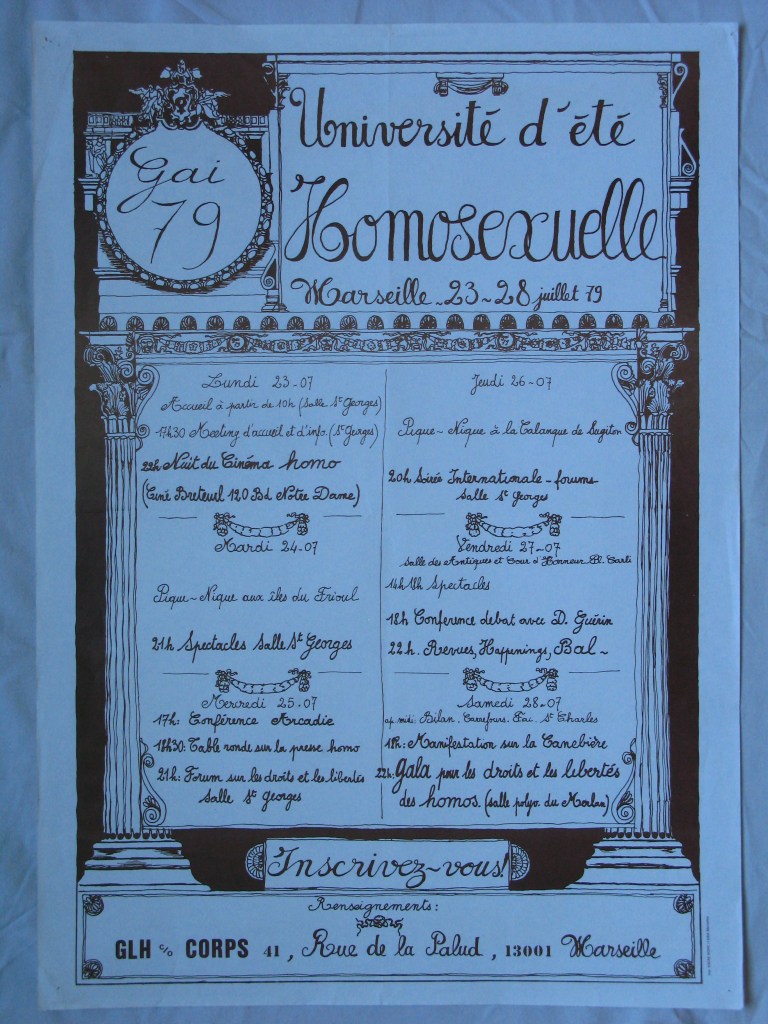 Gai
79
Université d'été
Homosexuelle
Marseille - 23-28 juillet 79
Lundi 23-07
Accueil à partir de 10h (Salle St Georges)
17h30 Meeting d'accueil et d'info. (St Georges)
22h Nuit du Cinéma homo
(Ciné Breteuil 120 Bd Notre Dame)
Mardi 24-07
Pique-Nique aux îles du Frioul
21h Spectacles Salle St Georges
Mercredi 25-07
17h: Conférence Arcadie
18h30: Table ronde sur la presse homo
21h: Forum sur les droits et les libertés
Salle St Georges
Jeudi 26-07
Pique-Nique à la Calanque de Sugiton
20h Soirée Internationale - forums
Salle St Georges
Vendredi 27-07
Salle des Antiques et Cour d'Honneur. Pl. Carli
14h 18h Spectacles
18h Conférence debat avec D. Guérin
22h. Revues, Happenings, Bal ~
Samedi 28-07
ap. midi: Bilan. Carrefours. Fac. St Charles
18h: Manifestation sur la Canebière
22h: Gala pour les droits et les libertés
des homos. (salle polyv. du Merlan)
Inscrivez-vous!
Renseignements:
GLH c/o CORPS 41, Rue de la Palud, 13001 Marseille